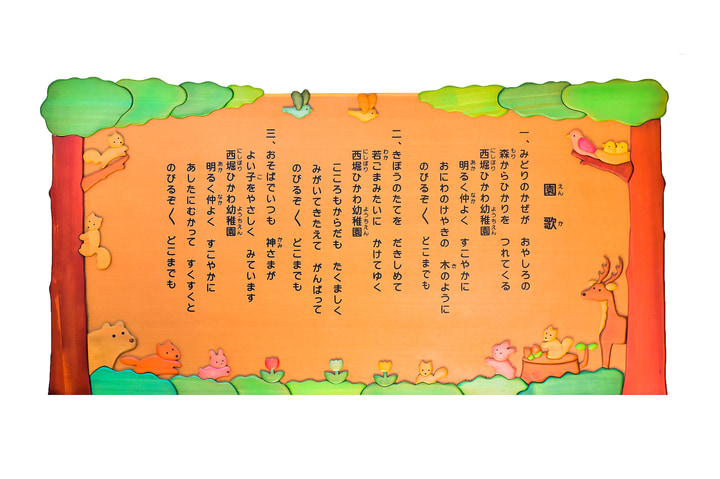 園歌
一、みどりのかぜが おやしろの
森からひかりを つれてくる
西堀ひかわ幼稚園
明るく仲よく すこやかに
おにわのけやきの 木のように
のびるぞ〱 どこまでも
二、きぼうのたてを だきしめて
若ごまみたいに かけてゆく
西堀ひかわ幼稚園
こころもからだも たくましく
みがいてきたえて がんばって
のびるぞ〱 どこまでも
三、おそばでいつも 神さまが
よい子をやさしく みています
西堀ひかわ幼稚園
明るく仲よく すこやかに
あしたにむかって すくすくと
のびるぞ〱 どこまでも